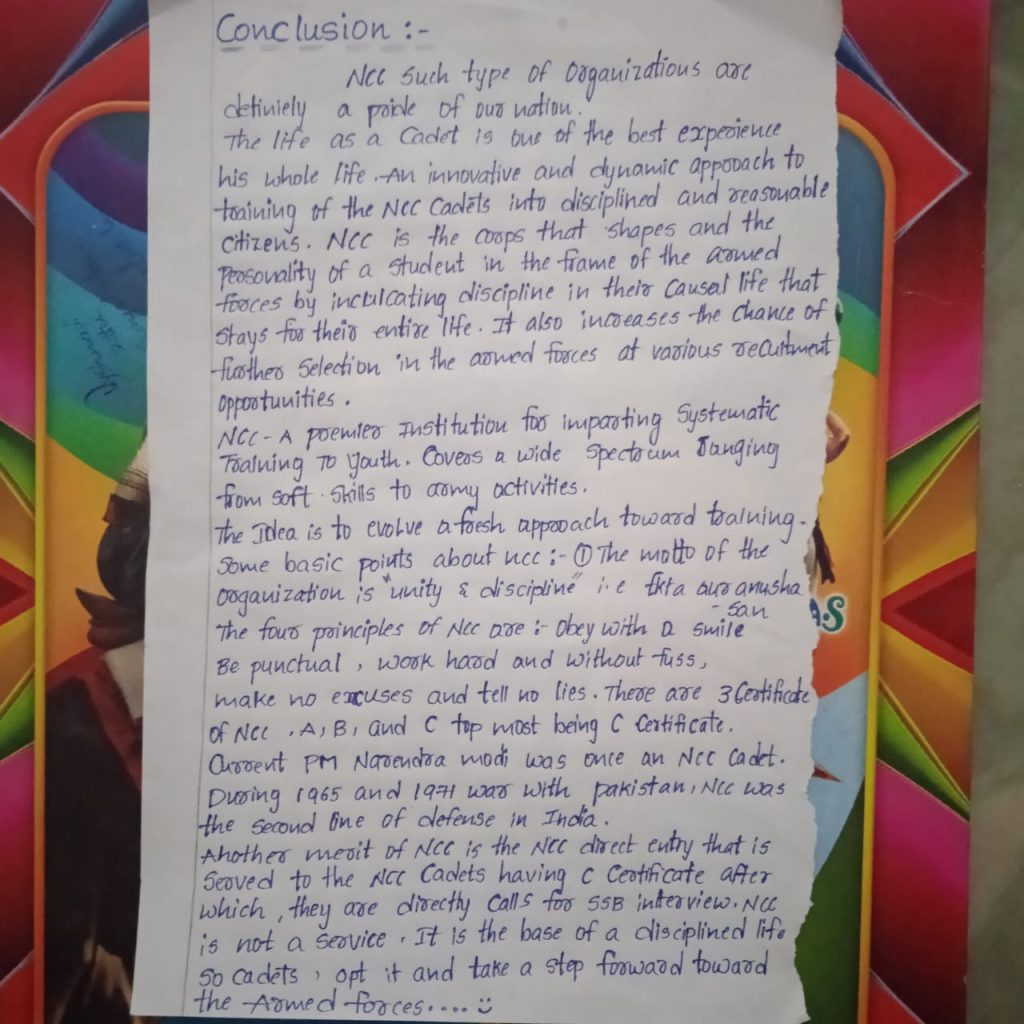 Conclusion :-
NCC such type of Organizations are
definiely a pride of our nation.
The life as a Cadet is one of the best experience
his whole life. An innovative and dynamic approach to
training of the NCC Cadets into disciplined and reasonable
Citizens. NCC is the corps that shapes and the
Personality of a student in the frame of the armed
forces by inclulcating discipline in their Causal life that
Stays for their entire life. It also increases the chance of
further Selection in the armed forces at various recuitment
Opportunities.
NCC - A premier Institution for imparting Systematic
Training To Youth. Covers a wide Spectrum Ranging
from Soft Skills to army activities.
The Idea is to evolve a fresh approach toward training.
Some basic points about ncc :- ① The motto of the
Organization is "unity & discipline" i.e Ekta aur anusha
- San
The four principles of Ncc are :- Obey with a smile
Be punctual, work hard and without fuss,
make no excuses and tell no lies. There are 3 Certificate
of Ncc , A, B, and C top most being C Certificate.
Current PM Narendra modi was once an Ncc Cadet.
During 1965 and 1971 war with pakistan, NCC was
the second line of defense in India.
Another merit of NCC is the NCC direct entry that is
Served to the NCC Cadets having C Certificate after
which, they are directly Calls for SSB interview. NCC
is not a service. It is the base of a disciplined life
So cadets, opt it and take a step forward toward
the Armed forces....
AS